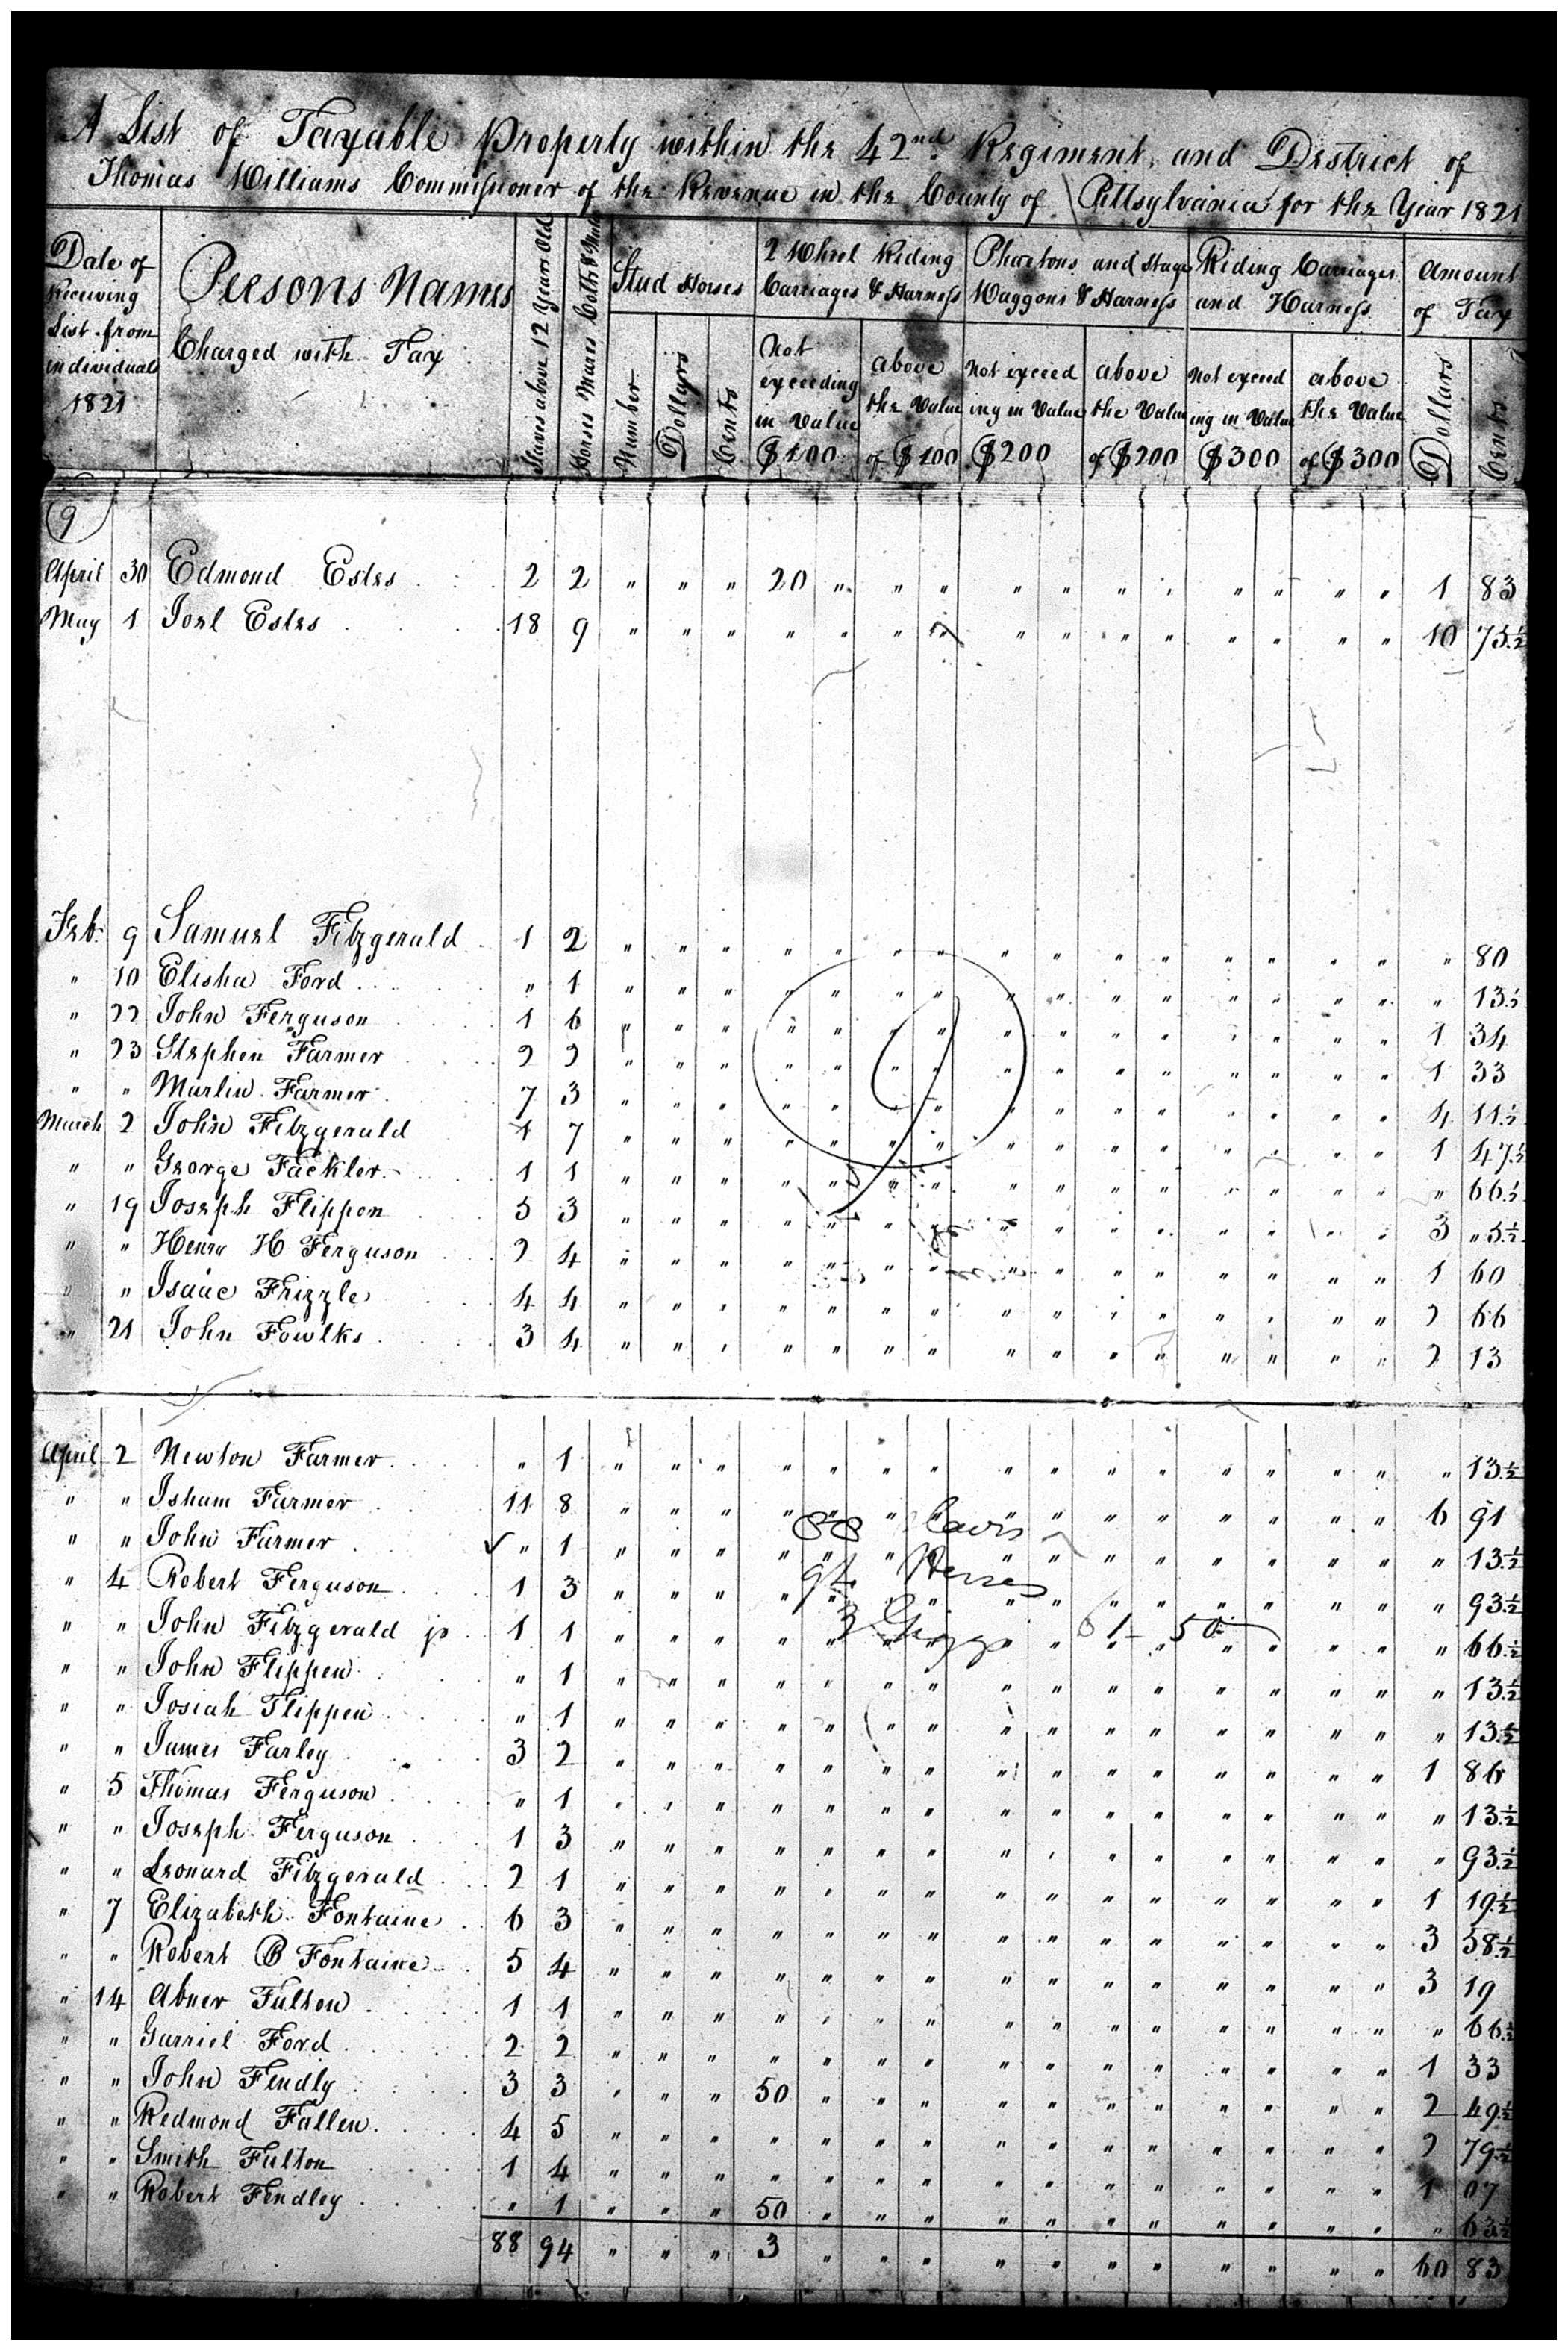 A List of Taxable Property within the 42nd Regiment, and District of
Thomas Williams Commissioner of the Revenue in the County of Pittsylvania for the Year 1821
Date of Receiving List from individuals 1821
Persons Names Charged with Tax
Slaves above 12 Years Old
Horses Mares Colts & Mules
Stud Horses
Number
Dollars
Cents
2 Wheel Riding Carriages & Harness
Not exceeding in Value $100
above the Value of $100
Phaetons and Stage Waggons & Harness
Not exceeding in Value $200
above the Value of $200
Riding Carriages and Harness
Not exceeding in Value $300
above the Value of $300
Amount of Tax
Dollars
Cents
9
April 30 Edmond Estes 2 2 " " " 20 " " " " " " " " " " " 1 83
May 1 Joel Estes 18 9 " " " " " " " " " " " " " " " 10 75½
Feb: 9 Samuel Fitzgerald 1 2 " " " " " " " " " " " " " " " " 80
" 10 Elisha Ford " 1 " " " " " " " " " " " " " " " " 13½
" 22 John Ferguson 1 6 " " " " " " " " " " " " " " " 1 34
" 23 Stephen Farmer 2 2 " " " " " " " " " " " " " " " 1 33
" " Marlin Farmer 7 3 " " " " " " " " " " " " " " " 4 11½
March 2 John Fitzgerald 1 7 " " " " " " " " " " " " " " " 1 47½
" " George Fackler 1 1 " " " " " " " " " " " " " " " " 66½
" 19 Joseph Flippen 5 3 " " " " " " " " " " " " " " " 3 "5½
" " Henry H Ferguson 2 4 " " " " " " " " " " " " " " " 1 60
" " Isaac Frizzle 4 4 " " " " " " " " " " " " " " " 2 66
" 21 John Fowlks 3 4 " " " " " " " " " " " " " " " 2 13
9
April 2 Newton Farmer " 1 " " " " " " " " " " " " " " " " 13½
" " Isham Farmer 11 8 " " " " " " " " " " " " " " " 6 91
" " John Farmer ✓ " 1 " " " " " " " " " " " " " " " " 13½
88
" 4 Robert Ferguson 1 3 " " " " " " " " " " " " " " " " 93½
94 Horses
" " John Fitzgerald jr 1 1 " " " " " " " " " " " " " " " " 66½
3 Giggs 61-50
" " John Flippen " 1 " " " " " " " " " " " " " " " " 13½
" " Josiah Flippen " 1 " " " " " " " " " " " " " " " " 13½
" " James Farley 3 2 " " " " " " " " " " " " " " " 1 86
" 5 Thomas Ferguson " 1 " " " " " " " " " " " " " " " " 13½
" " Joseph Ferguson 1 3 " " " " " " " " " " " " " " " " 93½
" " Leonard Fitzgerald 2 1 " " " " " " " " " " " " " " " 1 19½
" 7 Elizabeth Fontaine 6 3 " " " " " " " " " " " " " " " 3 58½
" " Robert B Fontaine 5 4 " " " " " " " " " " " " " " " 3 19
" 14 Abner Fulton 1 1 " " " " " " " " " " " " " " " " 66½
" " Garriel Ford 2 2 " " " " " " " " " " " " " " " 1 33
" " John Fendly 3 3 " " " 50 " " " " " " " " " " " 2 49½
" " Redmond Fallen 4 5 " " " " " " " " " " " " " " " 2 79½
" " Smith Fulton 1 4 " " " " " " " " " " " " " " " 1 07
" " Robert Fendley " 1 " " " 50 " " " " " " " " " " " " 63½
88 94 " " " 3 " " " " " " " " " " " 60 83